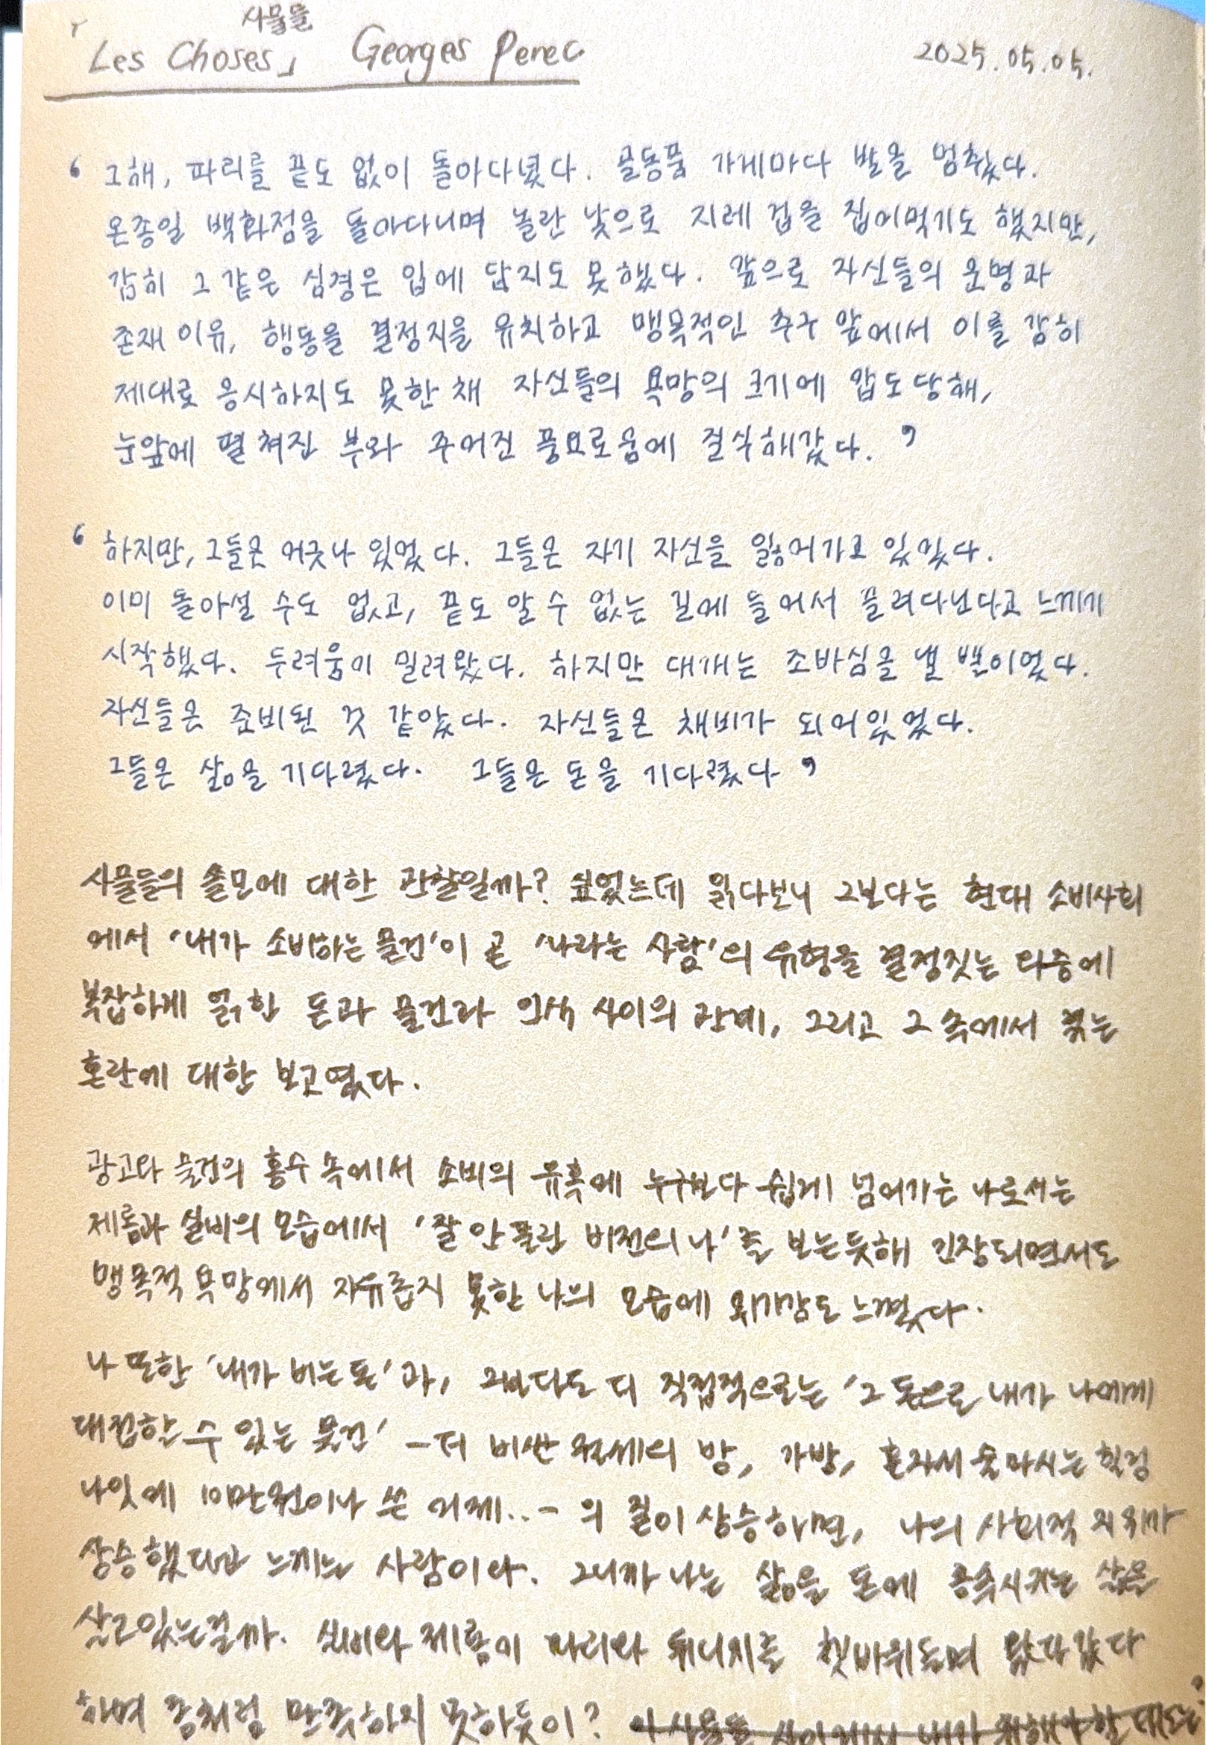 사물들
「Les Choses」 Georges Perec
2025.05.05.
‘ 그해, 파리를 끝도 없이 돌아다녔다. 골동품 가게마다 발을 멈췄다.
온종일 백화점을 돌아다니며 놀란 낯으로 지레 겁을 집어먹기도 했지만,
감히 그 같은 심경은 입에 담지도 못했다. 앞으로 자신들의 운명과
존재 이유, 행동을 결정지을 유치하고 맹목적인 추구 앞에서 이를 감히
제대로 응시하지도 못한 채 자신들의 욕망의 크기에 압도당해,
눈앞에 펼쳐진 부와 주어진 풍요로움에 질식해갔다. ’
‘ 하지만, 그들은 어긋나 있었다. 그들은 자기 자신을 잃어가고 있었다.
이미 돌아설 수도 없고, 끝도 알 수 없는 길에 들어서 끌려다닌다고 느끼기
시작했다. 두려움이 밀려왔다. 하지만 대개는 조바심을 낼 뿐이었다.
자신들은 준비된 것 같았다. 자신들은 채비가 되어있었다.
그들은 삶을 기다렸다. 그들은 돈을 기다렸다 ’
사물들의 쓸모에 대한 관찰일까? 싶었는데 읽다보니 그보다는 현대 소비사회
에서 ‘내가 소비하는 물건’이 곧 ‘나라는 사람’의 유형을 결정짓는 와중에
복잡하게 얽힌 돈과 물건과 인식 사이의 관계, 그리고 그 속에서 겪는
혼란에 대한 보고였다.
광고와 물건의 홍수 속에서 소비의 유혹에 누구보다 쉽게 넘어가는 나로서는
제롬과 실비의 모습에서 ‘잘 안풀린 버전의 나’를 보는듯해 긴장되면서도
맹목적 욕망에서 자유롭지 못한 나의 모습에 위기감도 느꼈다.
나 또한 ‘내가 버는 돈’과, 그보다도 더 직접적으로는 ‘그 돈으로 내가 나에게
대접할 수 있는 물건’ – 더 비싼 월세의 방, 가방, 혼자서 술마시는
나잇에 10만원이나 쓴 어제.. – 의 질이 상승하면, 나의 사회적 지위가
상승했다고 느끼는 사람이다. 그니까 나는 삶을 돈에 종속시키는 삶을
살고있는걸까. 실비와 제롬이 파리와 튀니지를 쳇바퀴돌며 왔다갔다
하며 좀처럼 만족하지 못하듯이? 이 사물들 사이에서 내가 취해야할 태도는?